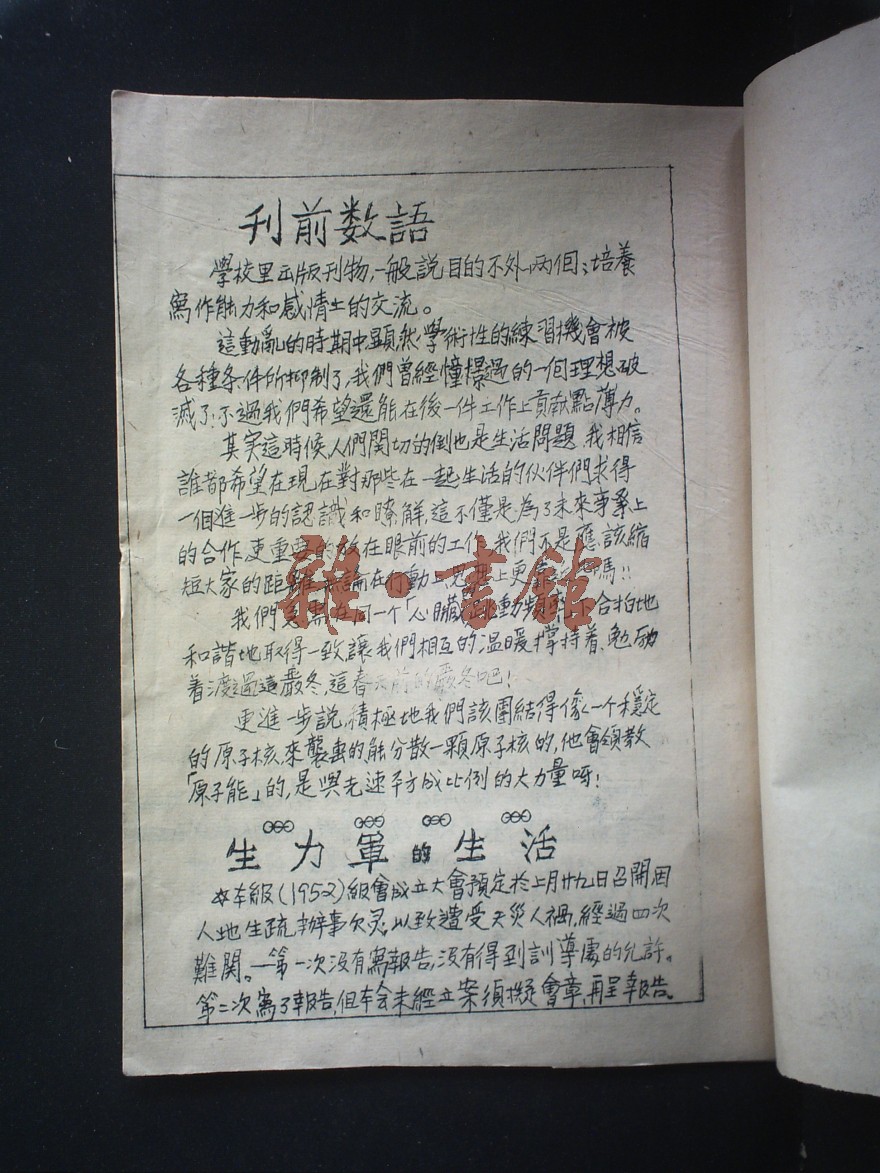 刊前数語
學校里出版刊物,一般說目的不外兩個:培養
寫作能力和感情上的交流。
這動亂的時期中,顯然,學術性的練習機會被
各種条件所抑制了,我們曾經憧憬過的一個理想破
滅了!不過我們希望還能在後一件工作上貢献點薄力。
其实這時候人們関切的倒也是生活問題,我相信
誰都希望在現在對那些在一起生活的伙伴們求得
一個進一步的認識和瞭解,這不僅是為了未來事業上
的合作,更重要的放在眼前的工作,我們不是應該縮
短大家的距離,無論在行動上,思想上更靠嗎!!
我們急需在同一个「心臟」跳動頻率下合拍地
和諧地取得一致讓我們相互的温暖撐持着,勉励
着渡過這嚴冬,這春天前的嚴冬吧!
更進一步説,積極地我們該團結得像一个穩定
的原子核,來襲擊的能分散一顆原子核的,他會領教
「原子能」的,是與光速平方成比例的大力量呀!
生力軍的生活
本級(1952)級會成立大會預定於上月廿九日召開因
人地生疏,辦事欠灵,以致遭受天災人禍,經過四次
難関。—第一次没有寫報告,没有得到訓導處的允許。
第二次寫了報告,但本会未經立案須擬會章,再呈報告。
雜·書館